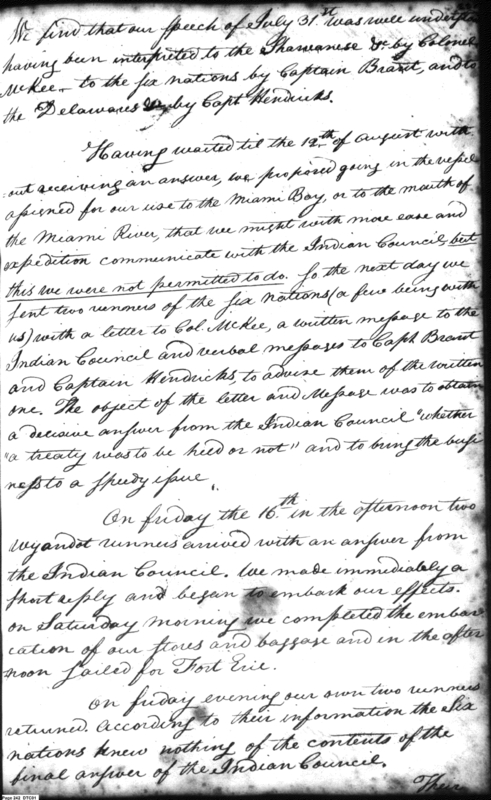 We find that our speech of July 31st was well understood
having been interpreted to the Shawanese &c by Colonel
McKee, to the six nations by Captain Brant, and to
the Delawares &c by Capt Hendricks.
Having waited til the 12th of August with-
out receiving an answer, we proposed going in the vessel
assigned for our use to the Miami Bay, or to the mouth of
the Miami River, that we might with more ease and
expedition communicate with the Indian Council, but
this we were not permitted to do. So the next day we
sent two runners of the six nations (a few being with
us) with a letter to Col. McKee, a written message to the
Indian Council and verbal messages to Capt. Brant
and Captain Hendricks, to advise them of the written
one. The object of the letter and Message was to obtain
a decisive answer from the Indian Council "whether
"a treaty was to be held or not" and to bring the busi
ness to a speedy issue.
On friday the 16th in the afternoon two
Wyandot runners arrived with an answer from
the Indian Council. We made immediably a
short reply and began to embark our effects.
on Saturday morning we completed the embar-
cation of our stores and baggage and in the after
noon sailed for Fort Erie.
on friday evening our own two runners
returned. According to their information the Six
nations knew nothing of the contents of the
final answer of the Indian Council.
Their
Page 242 DTC01